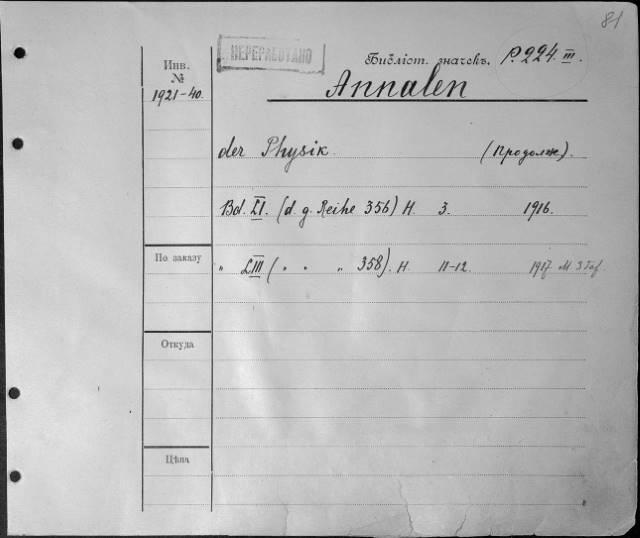 81
ПЕРЕРАБОТАНО
Библіот. значекъ. P. 224. III.
Инв.
№
1921-40.
Annalen
der Physik. (Продолж).
Bd. LI. (d. g. Reihe 356) H. 3. 1916.
" LIII ( " " " 358). H. 11-12. 1917. M. 3 Taf.
По заказу
Откуда
Цѣна